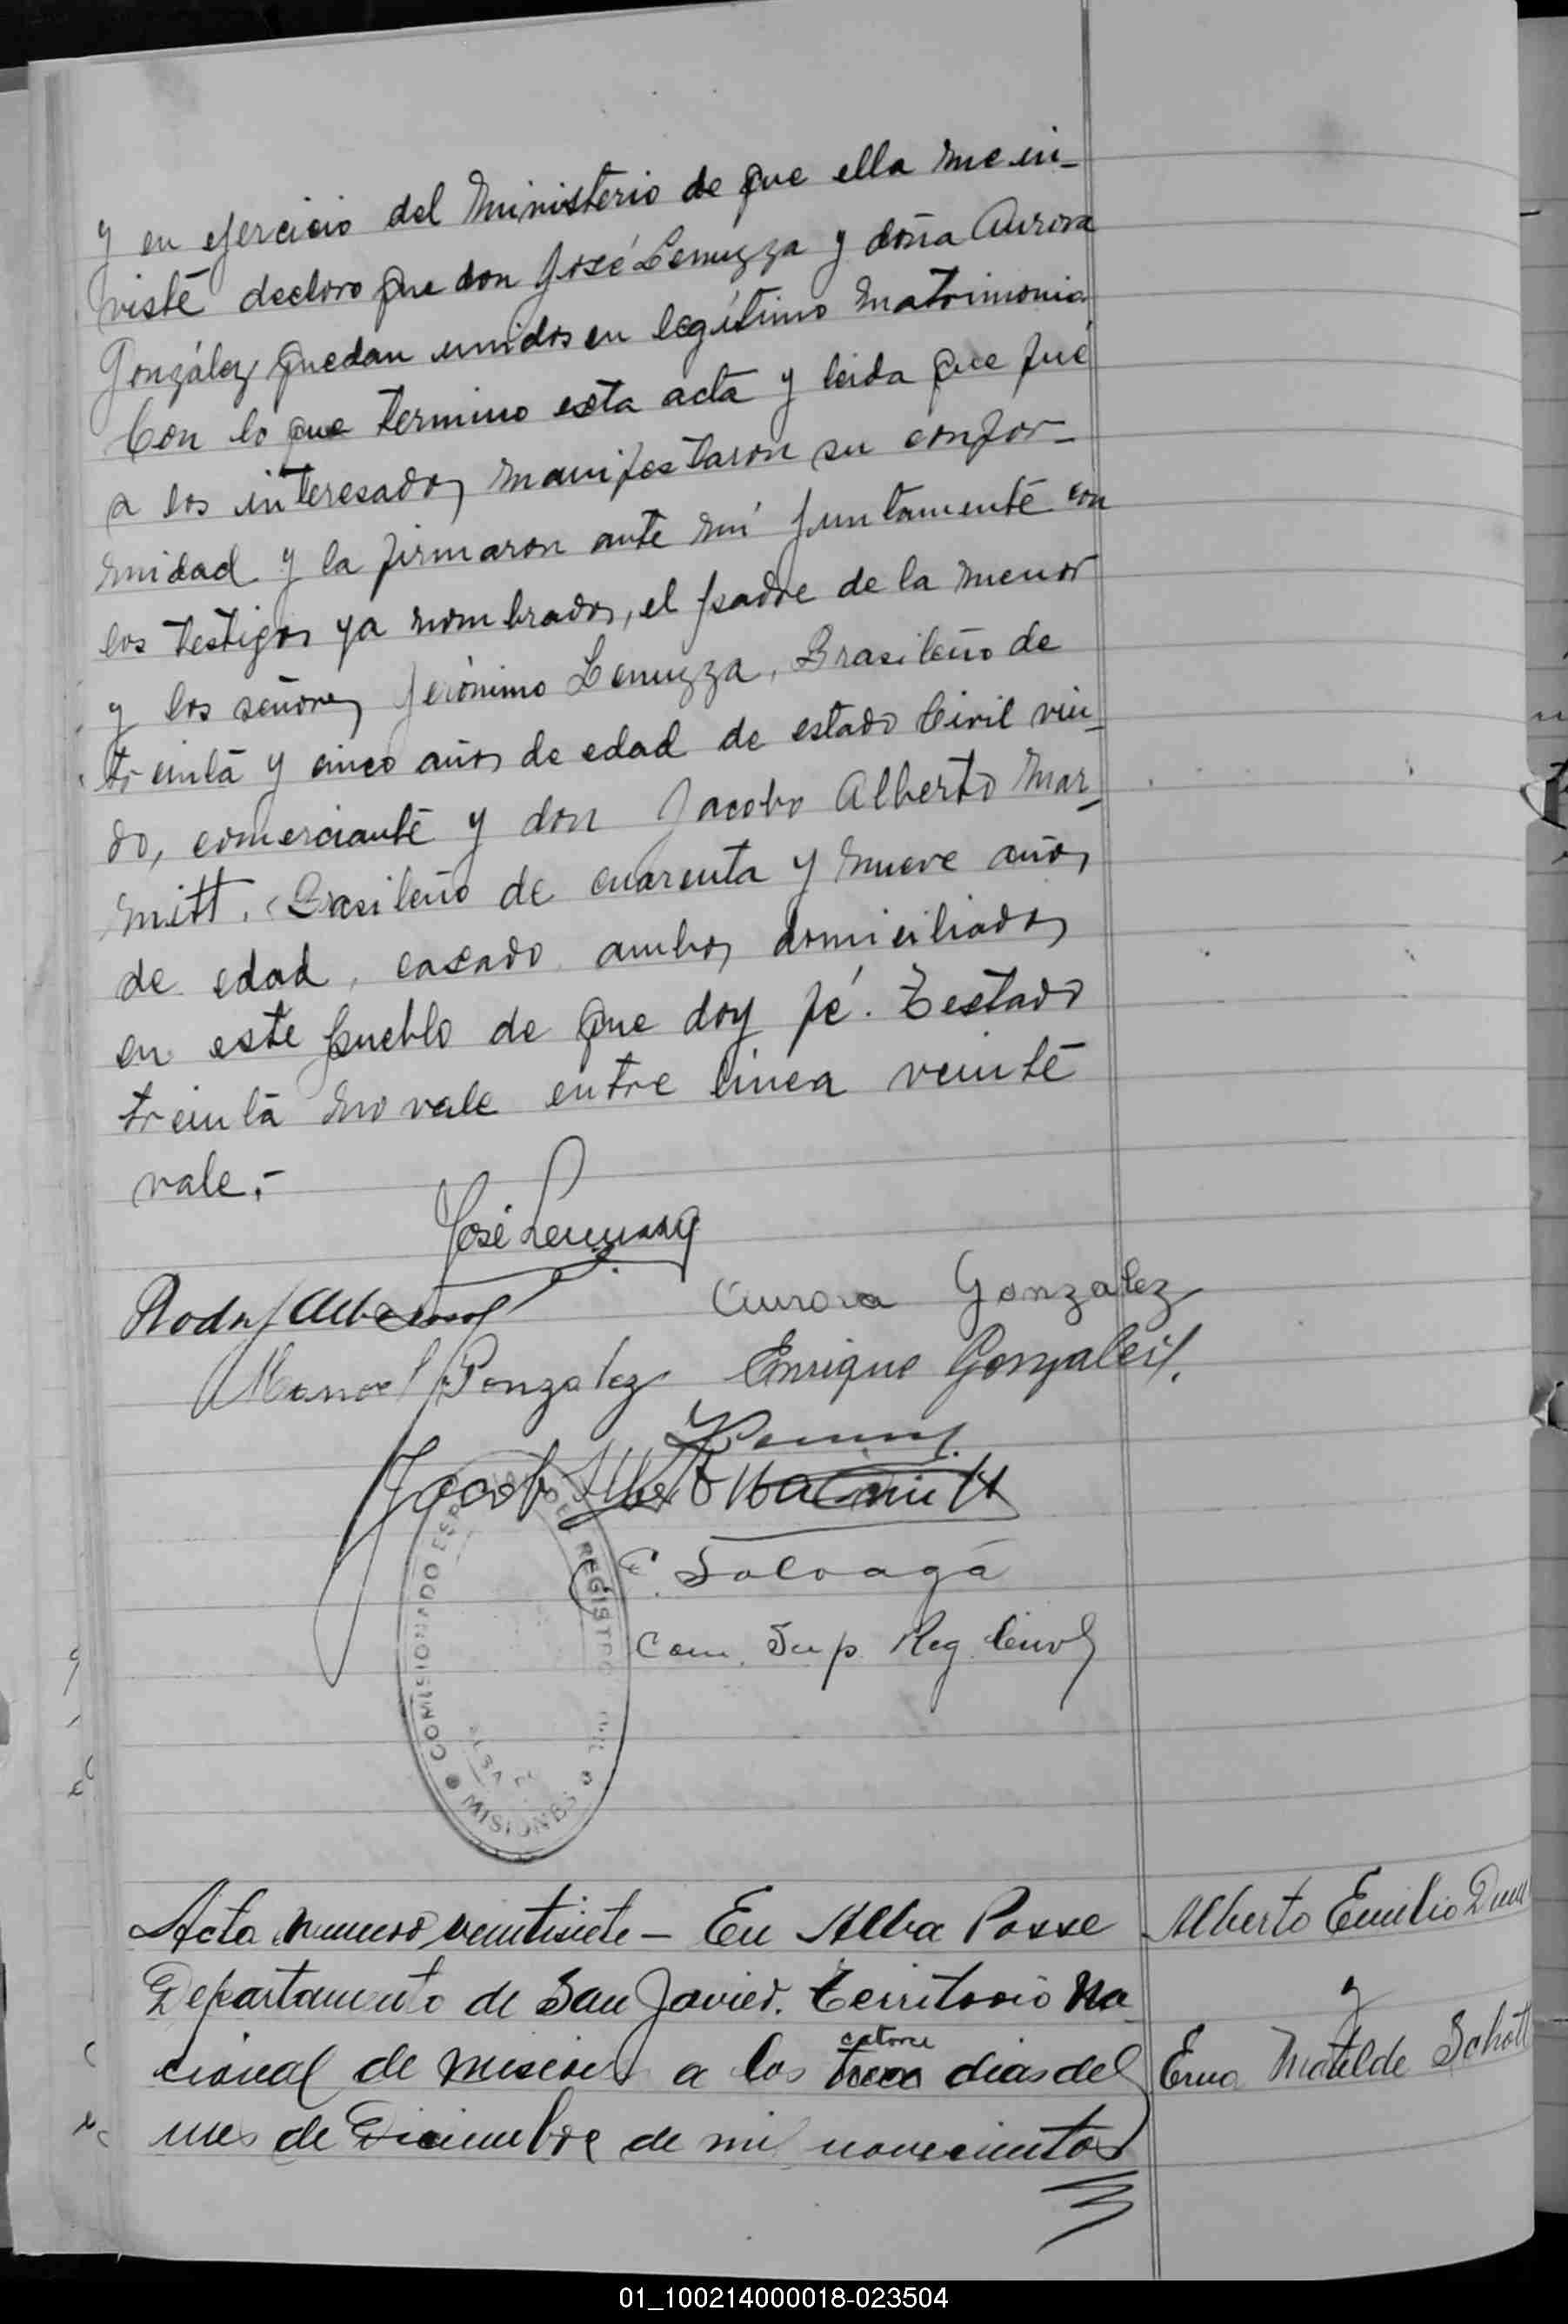 y en ejercicio del ministerio de que ella me in-
visté declaro que don José Lemuzza y doña Aurora
González quedan unidos en legítimo matrimonio
Con lo que termino esta acta y leida que fué
a los interesados manifestaron su confor-
midad y la firmaron ante mí juntamente con
los testigos ya nombrados, el padre de la menor
y los señores Jerónimo Lemuzza, Brasileño de
treinta y cinco años de edad de estado Civil viu-
do, comerciante y don Jacobo Alberto Mar-
mitt, Brasileño de cuarenta y nueve años
de edad, casado, ambos domiciliados
en este pueblo de que doy fé. Testado
treinta no vale entre linea veinte
vale.-
José
Aurora González
Manoel Gonzalez Enrique
Jacob Albert
E.
Com. Sup. Reg. Civil
COMISIONADO REGISTRO
MISIONES
Acta numero veintisiete - En Alba Posse
Departamento de San Javier. Territorio Na-
catorce
cional de Misiones a los trece dias del
mes de Diciembre de mil novecientos
Alberto Emilio
y
Erna Matilde Schott
01_100214000018-023504